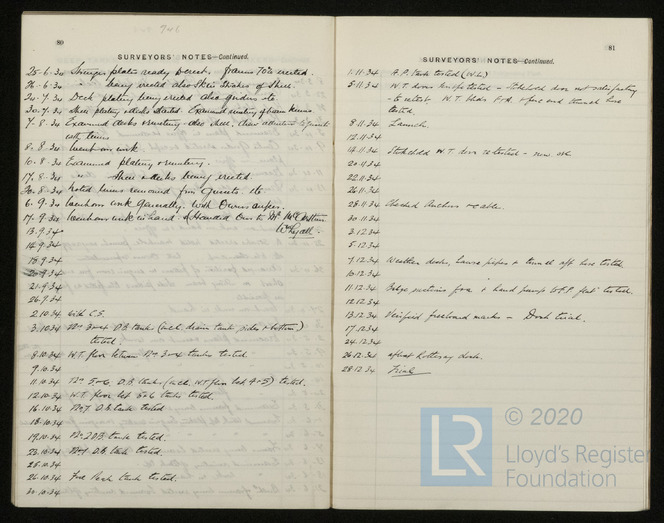 746
80
SURVEYORS' NOTES—Continued.
25.6.34 Stringer plates ready to erect. frames 70% erected.
26.6.34 " being erected also Skin Strakes of Shell.
24.7.34 Deck plating being erected also girders etc
30.7.34 Shell plating & decks started. Examined riveting of beam knees.
7.8.34 Examined decks & riveting also shell.
8.8.34 went on with
10.8.34 Examined plating & riveting.
17.8.34 " Shell & decks being erected
30.8.34 noted
6.9.34 work generally, with Owners
17.9.34 work in hand & Handed Over to Mr McArthur
13.9.34
14.9.34
18.9.34
20.9.34
21.9.34
26.9.34
2.10.34 with C.S.
3.10.34 No 3 & 4 D.B. tank (incl. drain tank sides & bottom)
tested.
8.10.34 W.T. floor between No 3 & 4 tanks tested.
9.10.34
11.10.34 No 5 & 6 D.B. tanks (incl. W.T. floor bet 4 & 5) tested.
12.10.34 W.T. floor bet 5 & 6 tanks tested.
16.10.34 No 7 D.B. tank tested
18.10.34
19.10.34 No 2 D.B. tank tested.
23.10.34 No 1 D.B. tank tested.
25.10.34
26.10.34 Fore Peak tank tested.
30.10.34
81
SURVEYORS' NOTES—Continued.
1.11.34 A.P. tank tested (W.L.)
5.11.34 W.T. doors tested - Stokehold door not satisfactory
- to retest. W.T. bhds F'd & tunnel hose
tested.
8.11.34 Launch.
12.11.34
14.11.34 Stokehold W.T. door re-tested - now ok
20.11.34
22.11.34
26.11.34
28.11.34 Checked Anchors & cable.
30.11.34
3.12.34
5.12.34
7.12.34 Weather decks, hawse pipes & tunnel aft hose tested.
10.12.34
11.12.34 Bilge suctions fore & hand pump to F.P. flat tested.
12.12.34
13.12.34 Verified freeboard marks - Dock trial.
17.12.34
24.12.34
26.12.34 afloat Rothesay dock.
28.12.34 Trial
LR © 2020
Lloyd's Register
Foundation